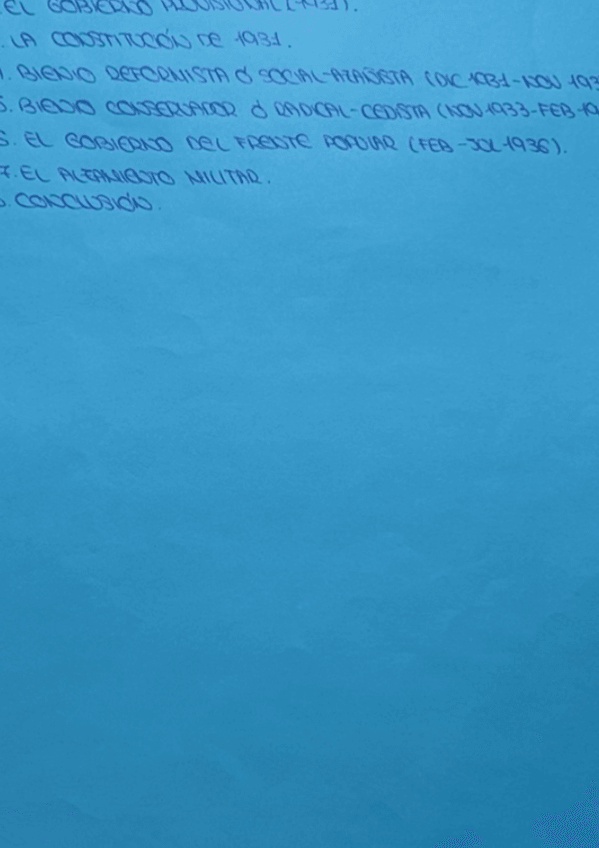 EL GOBIERNO PROVISIONAL (-1931).
. LA CONSTITUCIÓN DE 1931.
. BIENIO REFORMISTA Ó SOCIAL-AZAÑISTA (DIC 1931-NOV 193
5. BIENIO CONSERVADOR Ó RADICAL-CEDISTA (NOV 1933-FEB-19
6. EL GOBIERNO DEL FRENTE POPULAR (FEB-JUL 1936).
7. EL ALZAMIENTO MILITAR.
. CONCLUSIÓN.